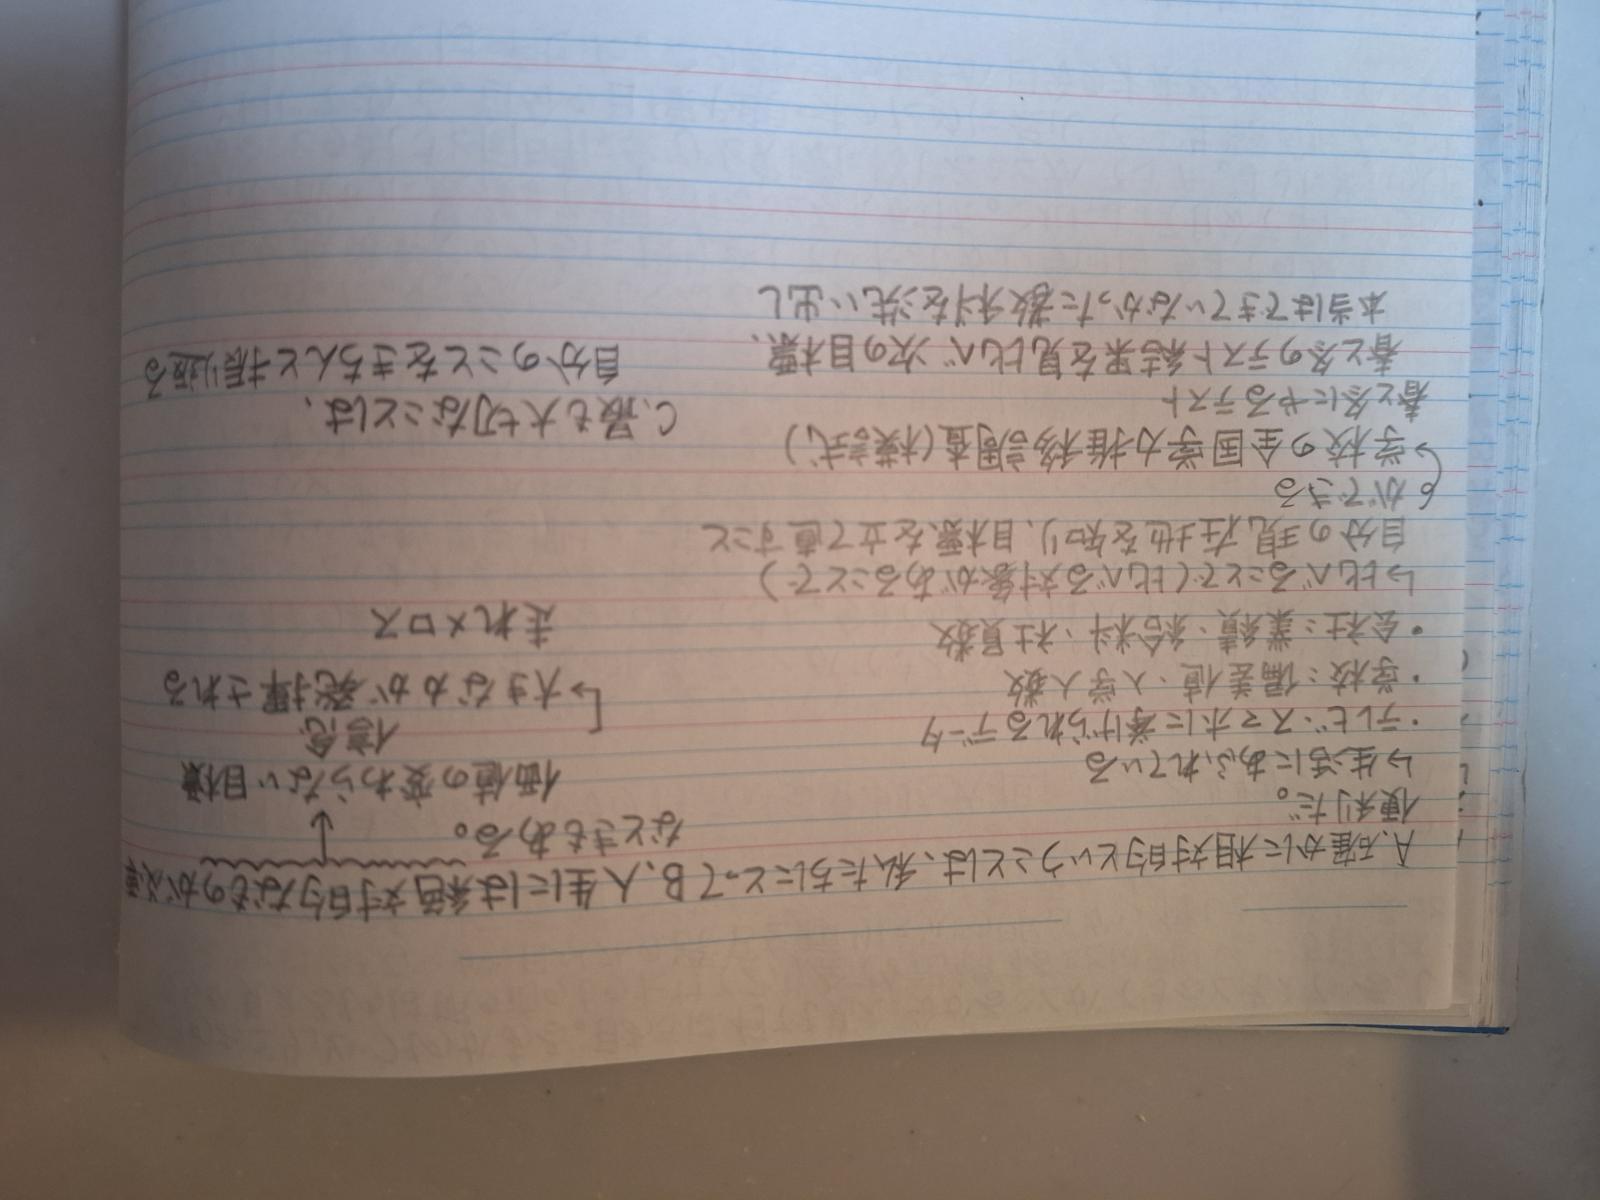 A.確かに相対的ということは、私たちにとって
便利だ。
↳生活にあふれている
・テレビ・スマホに挙げられるデータ
・学校：偏差値、入学人数
・会社：業績、給料、社員数
↳比べることで(比べる対象があることで)
自分の現在地を知り、目標を立て直すこと
ができる
学校の全国学力推移調査(模試)
春と冬にやるテスト
春と冬のテスト結果を見比べ次の目標、
本当はできていなかった教科を洗い出し
B.人生には絶対的なものが必要
なときもある。
↓
価値の変わらない目標
信念
↳大きな力が発揮される
走れメロス
C.最も大切なことは、
自分のことをきちんと振り返る